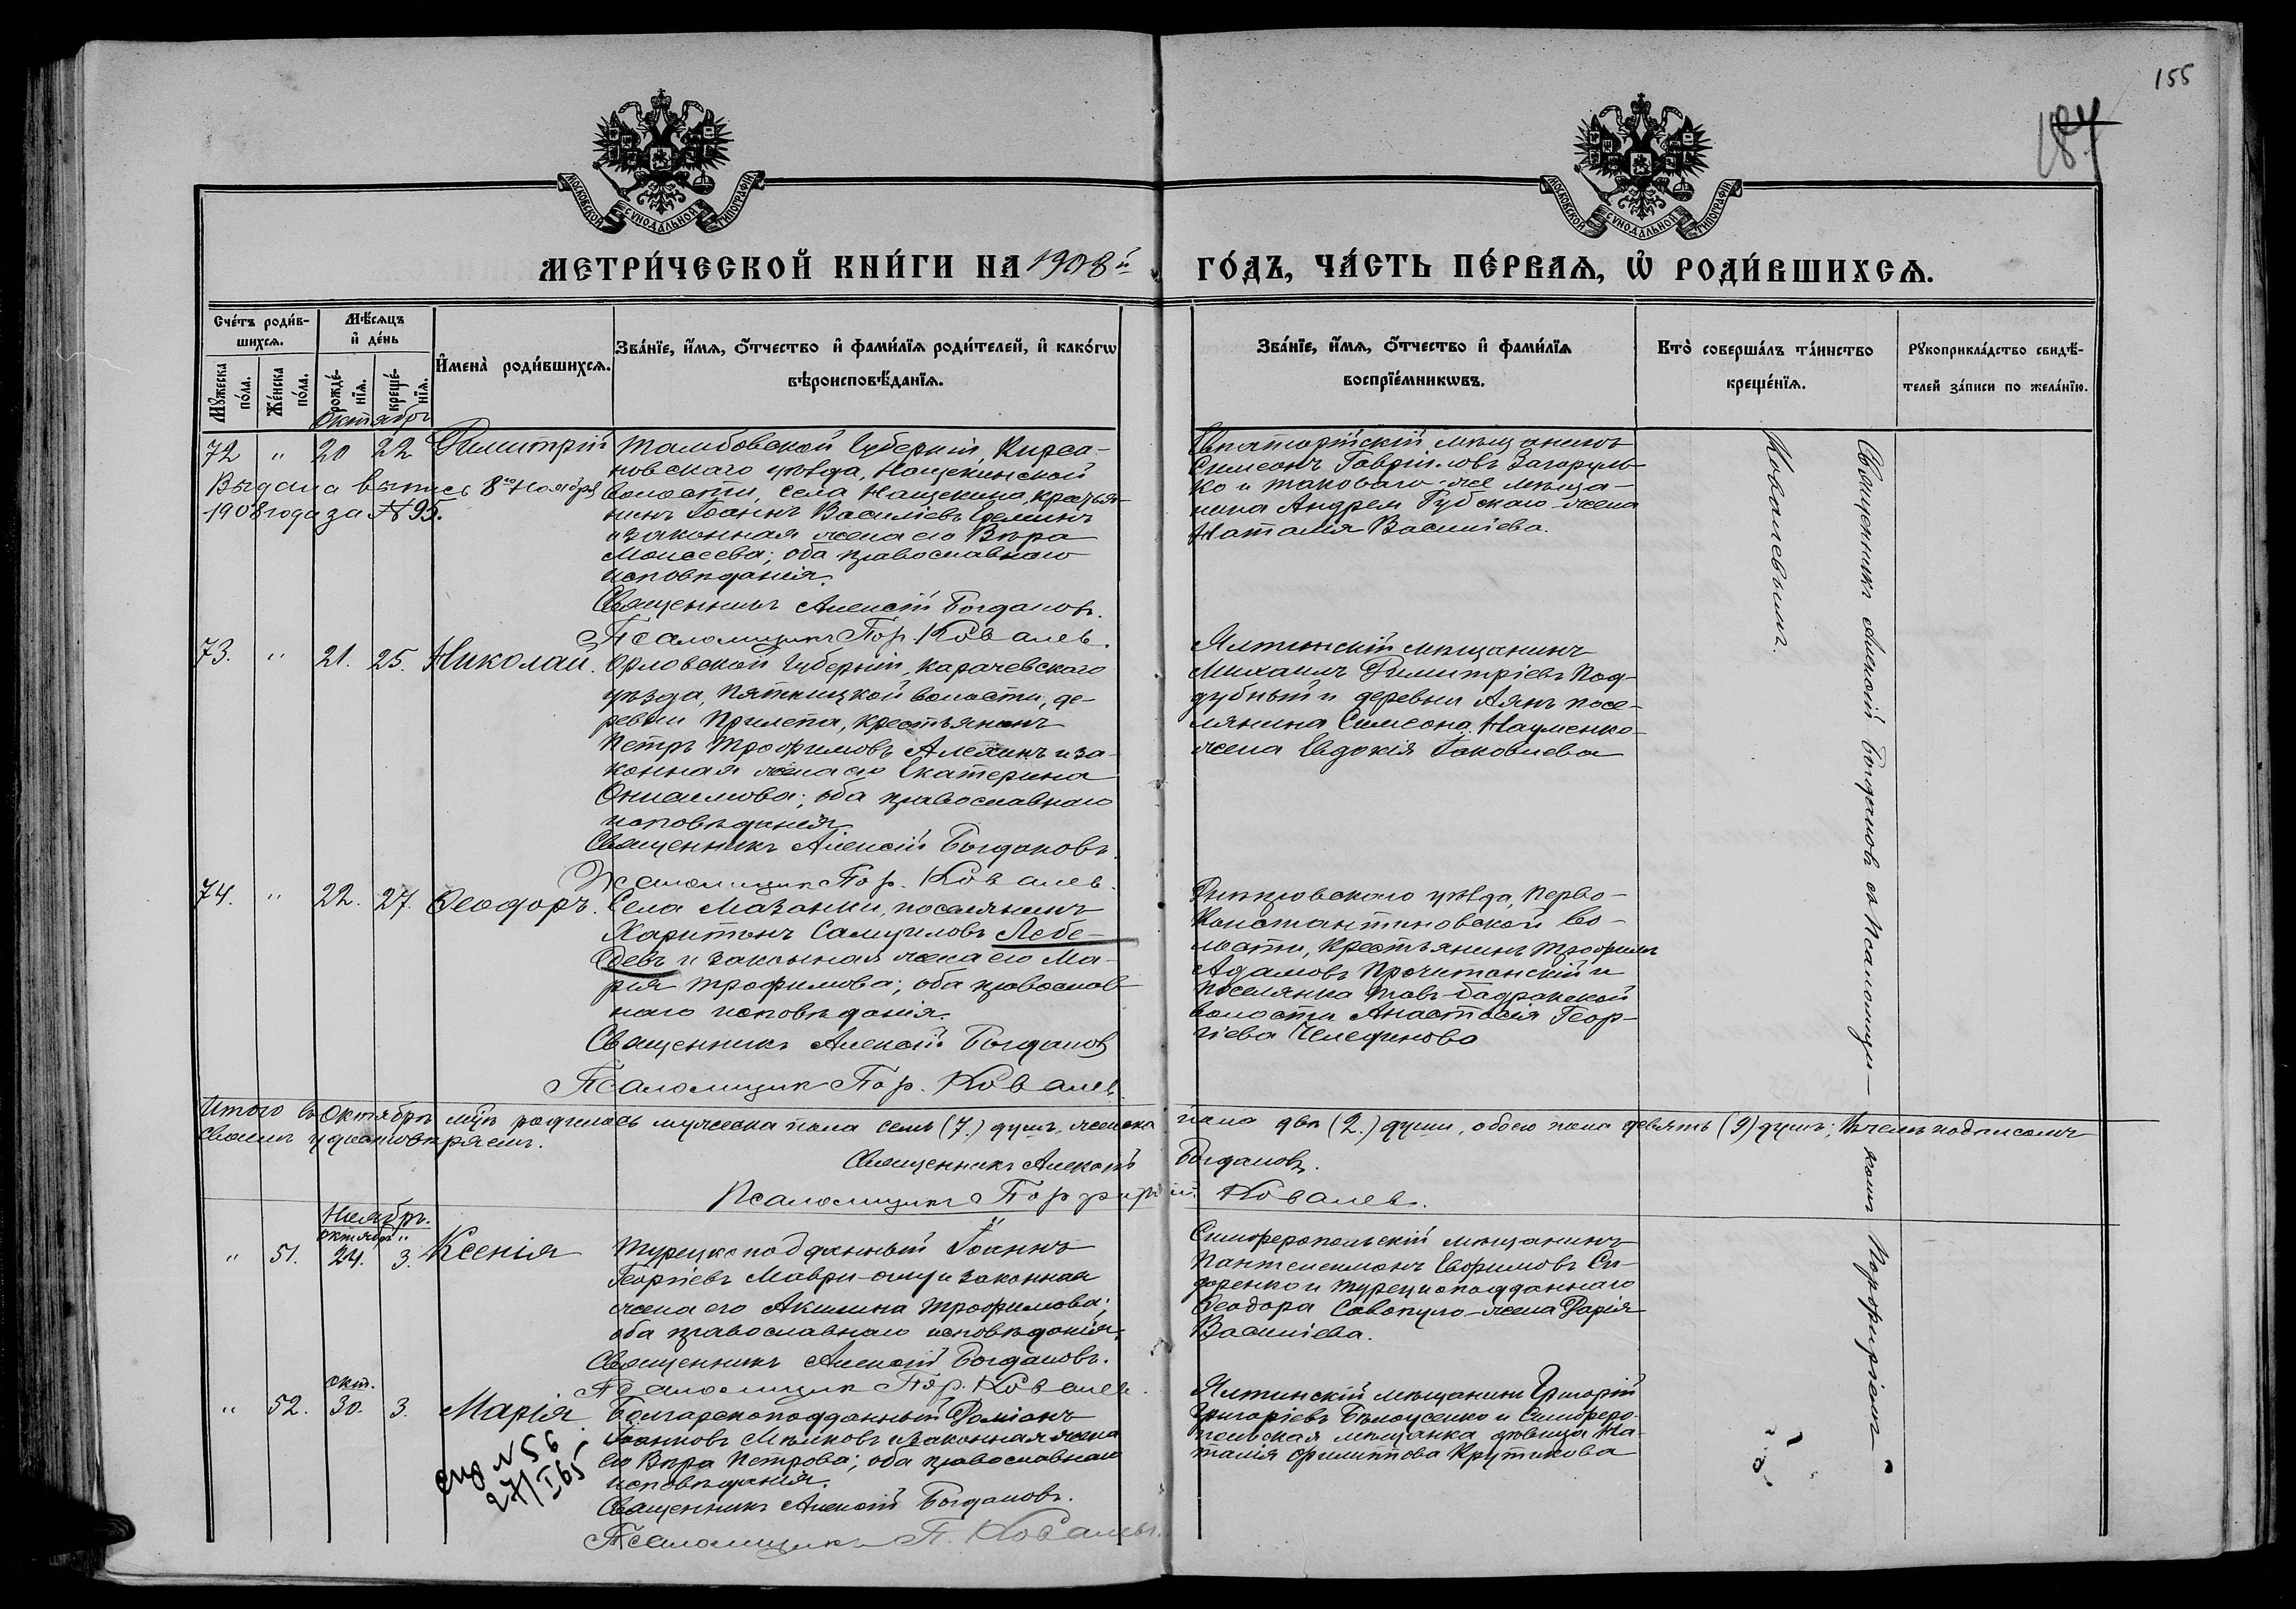 155
184
МОСКОВСКОЙ СѴНОДАЛЬНОЙ ТИПОГРАФІИ
МОСКОВСКОЙ СѴНОДАЛЬНОЙ ТИПОГРАФІИ
МЕТРИ́ЧЕСКОЙ КНИ́ГИ НА 1908й ГО́ДЪ, ЧА́СТЬ ПЕ́РВАЯ, Ѡ҆ РОДИ́ВШИХСЯ.
Сче́тъ роди́в-
шихся.
Мꙋ́жеска по́ла.
Же́нска по́ла.
Мѣ́сяцъ
и҆ де́нь
рожде́-
нїя.
креще́-
нїя.
И҆мена̀ роди́вшихся.
Зва́нїе, и҆́мя, ѻ҆́тчество и҆ фами́лїя роди́телей, и҆ како́гѡ
вѣроисповѣ́данїя.
Зва́нїе, и҆́мя, ѻ҆́тчество и҆ фами́лїя
воспрїе́мникѡвъ.
Кто̀ соверша́лъ та́инство
креще́нїя.
Рꙋкоприкла́дство свидѣ́-
телей за́писи по жела́нїю.
Октябрь
72 " 20 22 Димитрій
Выдана выпись 8го Ноября
1908 года за № 95.
Тамбовской Губерніи, Кирса-
новскаго уѣзда, Нащекинской
волости, села Нащекина, крестья-
нинъ Іоаннъ Василіевъ
и законная жена его Вѣра
Моисеева; оба православнаго
исповѣданія.
Священникъ Алексій Богдановъ.
Псаломщикъ Пор. Ковалев.
Евпаторійскій мѣщанинъ
Симеонъ Гавріиловъ Загоруль-
ко и таковаго-же мѣща-
нина Андрея Губскаго жена
Наталія Василіева.
73. " 21. 25. Николай.
Орловской Губерніи, Карачевскаго
уѣзда, Пятницкой волости, де-
ревни Прилепа, крестьянинъ
Петръ Трофимовъ Алехинъ и за-
конная жена его Екатерина
оба православнаго
исповѣданія.
Священникъ Алексій Богдановъ.
Псаломщик Пор. Ковалев.
Ялтинскій мѣщанинъ
Михаилъ Димитріевъ Под-
дубный и деревни Аянъ посе-
лянина Симеона Науменко
жена Евдокія Іаковлева
74. " 22. 27. Ѳеодоръ.
Села Мазанки, поселянинъ
Харитонъ Самуиловъ Лебе-
девъ и законная жена его Ма-
рія Трофимова; оба православ-
наго исповѣданія.
Священникъ Алексій Богданов
Псаломщик Пор. Ковалев
Днѣпровскаго уѣзда, Перво-
Константиновской во-
лости, крестьянинъ Трофимъ
Адамовъ Прочитанскій и
поселянка Тавъ-Бадракской
волости Анастасія Геор-
гіева Челединова
Итого въ октябрѣ м-цѣ родилось мужеска пола семь (7.) душъ, женска пола двѣ (2.) души, обоего пола девять (9) душъ; въ чемъ подписомъ
своимъ удостовѣряемъ.
Священникъ Алексій Богдановъ.
Псаломщикъ Порфирій Ковалев.
Ноябрь.
октябрь "
" 51. 24. 3. Ксенія
Турецкоподданный Іоаннъ
Георгіевъ Маври-оглу и законная
жена его Акилина Трофимова;
оба православнаго исповѣданія.
Священникъ Алексій Богдановъ.
Псаломщик Пор. Ковалев.
Симферопольскій мѣщанинъ
Пантелеимонъ Евфимовъ Си-
доренко и турецкоподданнаго
Ѳеодора Савопуло-жена Дарія
Василіева.
окт.
" 52. 30. 3. Марія
N 56
27/I 65
Болгарскоподданный Даміанъ
Іоанновъ Мѣлковъ и законная жена
его Вѣра Петрова; оба православнаго
исповѣданія.
Священникъ Алексій Богдановъ.
Псаломщикъ П. Ковалевъ.
Ялтинскій мѣщанинъ Григорій
Григоріевъ Бѣлоусенко и Симферо-
польская мѣщанка дѣвица На-
талія Филиппова Крутикова
Священникъ Алексій Богдановъ съ Псаломщи-
комъ Порфиріемъ
Ковалевымъ.